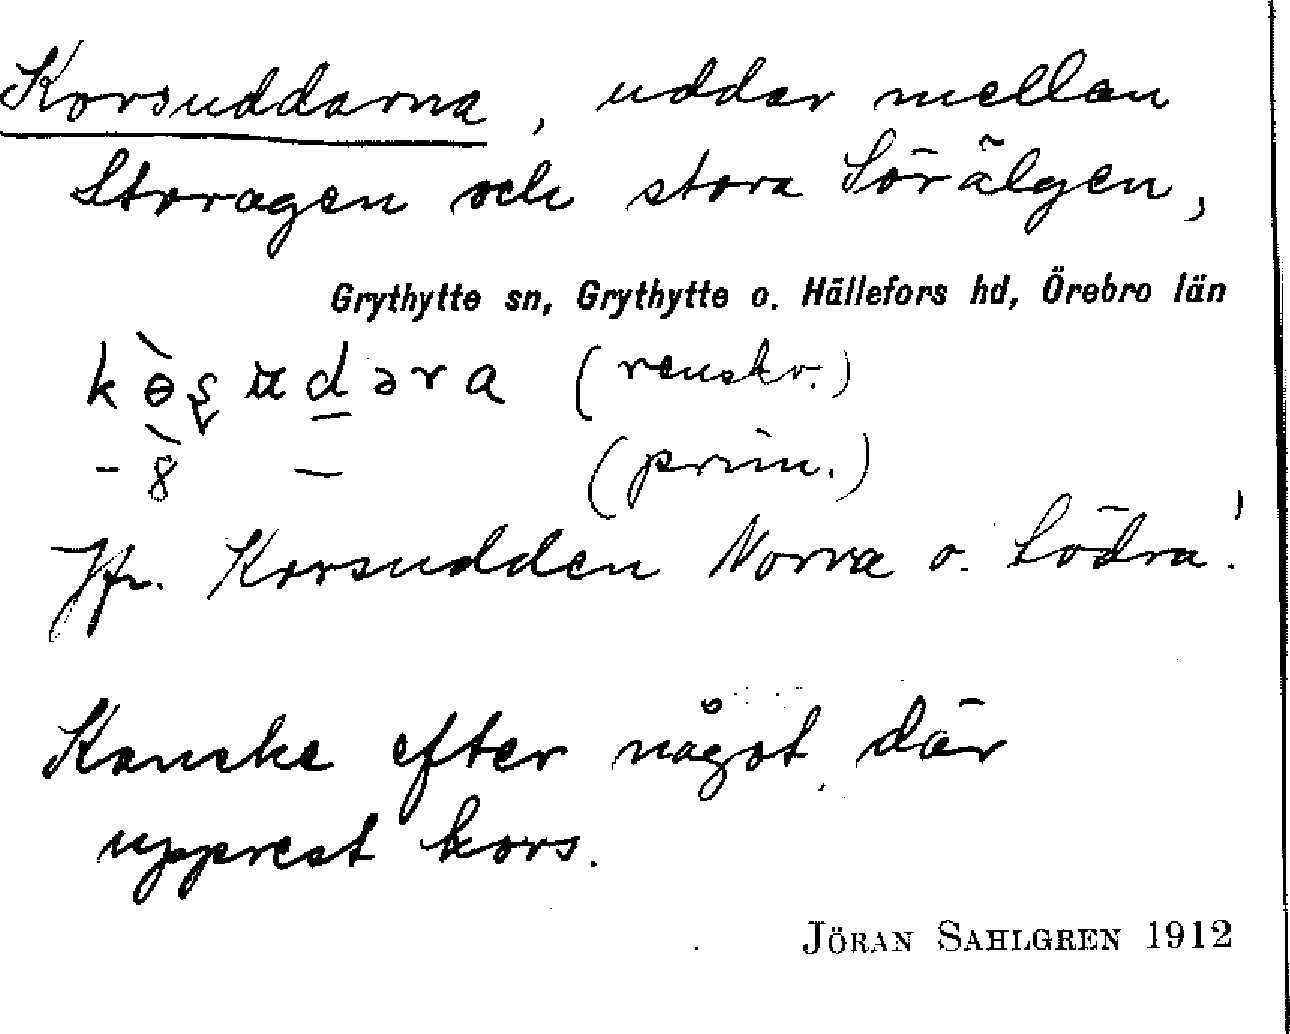 Korsuddarna, uddar mellan
Storagen och stora Sörälgen,
Grythytte sn, Grythytte o. Hällefors hd, Örebro län
(renskr.)
(prim.)
Jfr. Korsudden Norra o. Södra!
Kanske efter något där
upprest kors.
JÖRAN SAHLGREN 1912